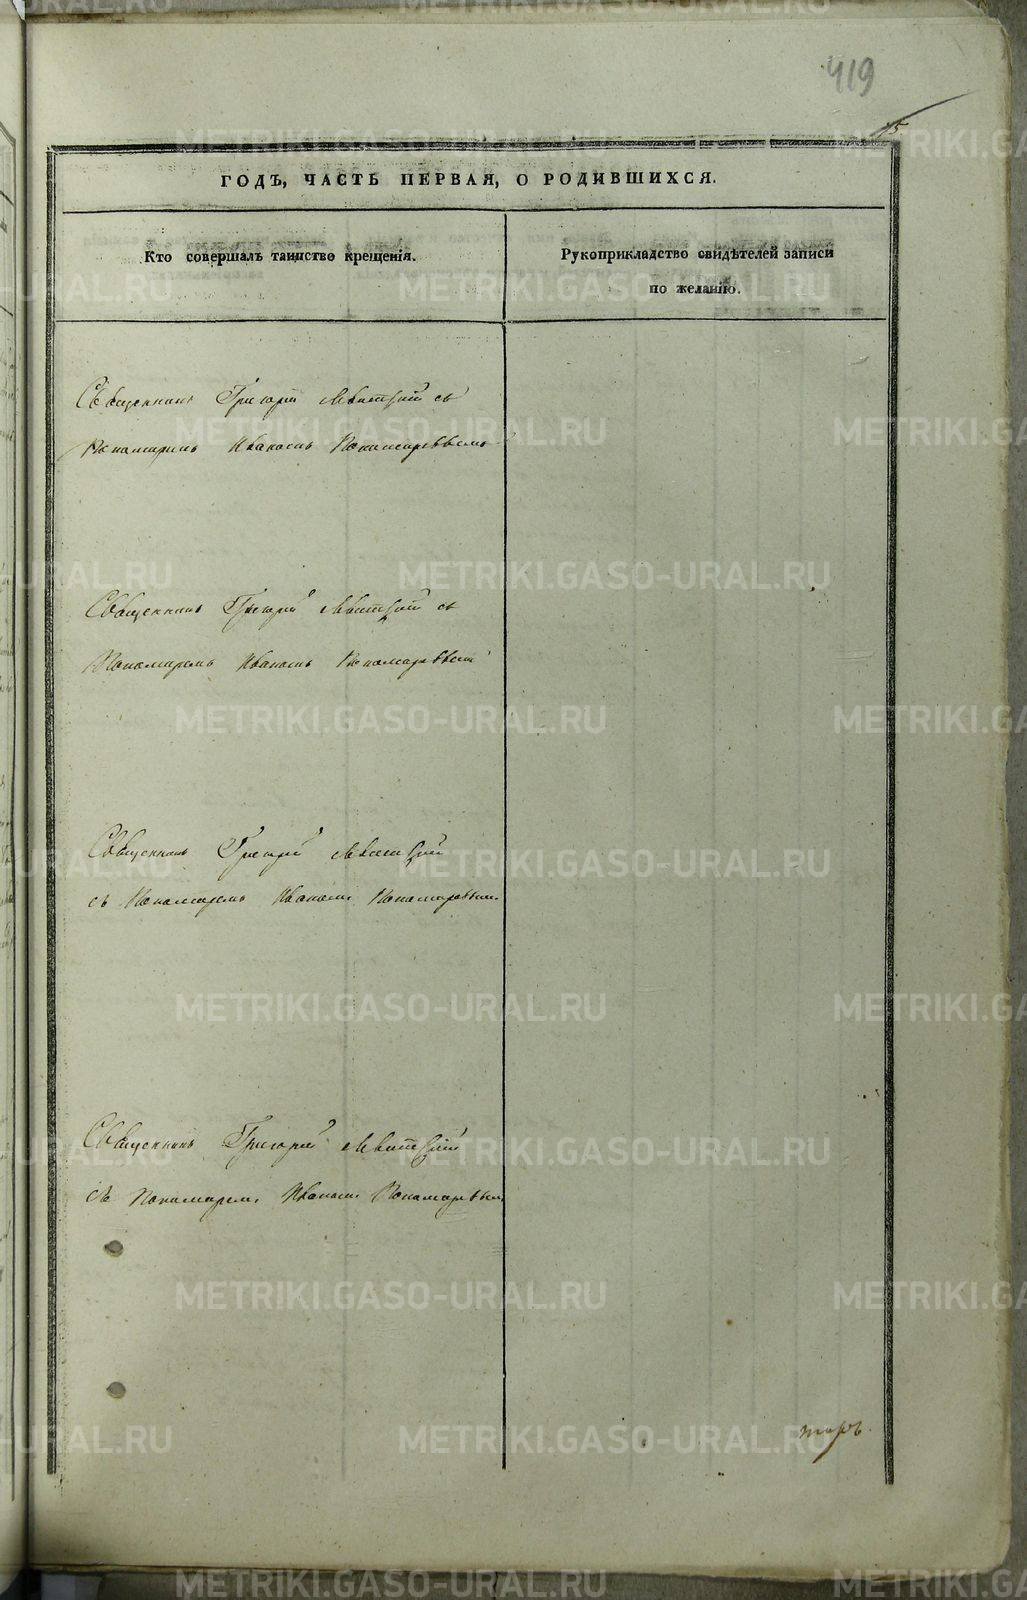 419
15.
ГОДЪ, ЧАСТЬ ПЕРВАЯ, О РОДИВШИХСЯ.
Кто совершалъ таинство крещенія.
Рукоприкладство свидѣтелей записи
по желанію.
Священникъ Григорій Левитскій съ
Пономаремъ Иваномъ Пономаревымъ
Священникъ Григорій Левитскій съ
Пономаремъ Иваномъ Пономаревымъ
Священникъ Григорій Левитскій
съ Пономаремъ Иваномъ Пономаревымъ
Священникъ Григорій Левитскій
съ Пономаремъ Иваномъ Пономаревымъ
METRIKI.GASO-URAL.RU